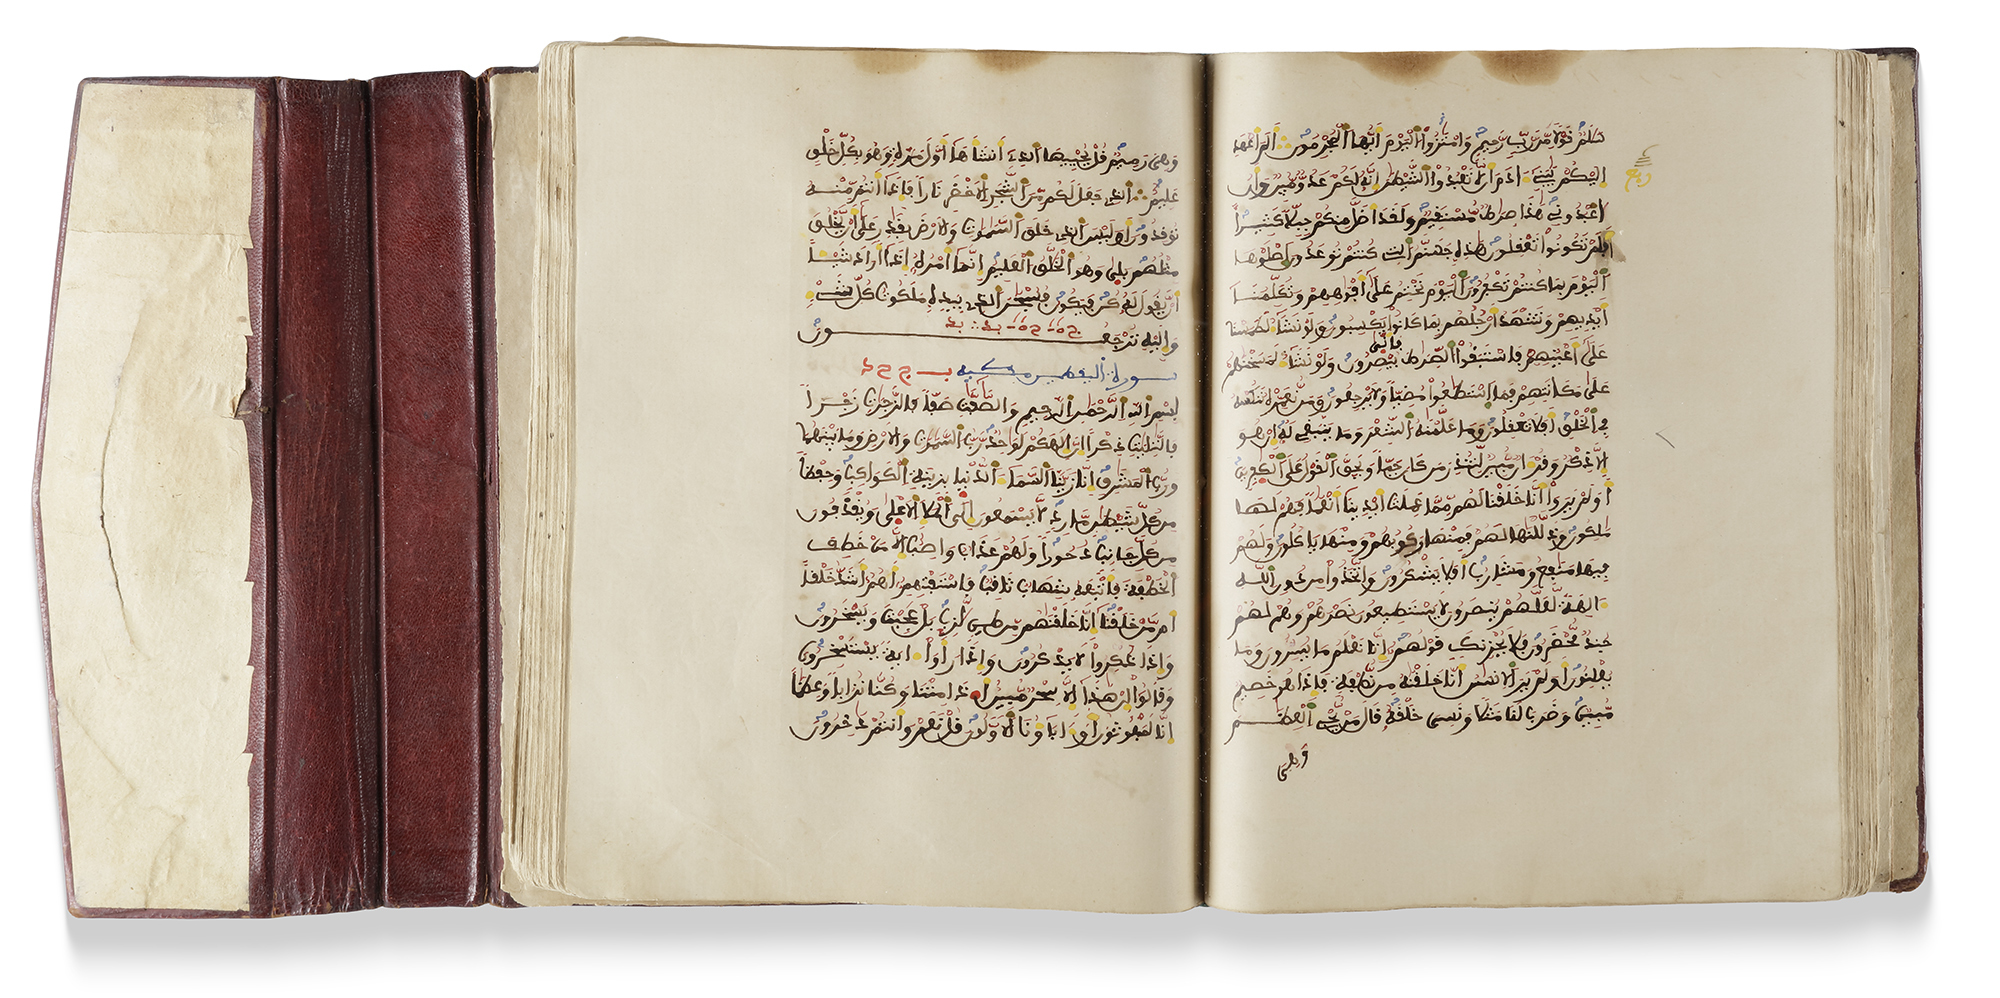 سَلَٰمٌ قَوْلًا مِّن رَّبٍّ رَّحِيمٍ وَامْتَٰزُوا الْيَوْمَ أَيُّهَا الْمُجْرِمُونَ أَلَمْ أَعْهَدِ
ربع
إلَيْكُمْ يَٰبَنِي ءَادَمَ أَن لَّا تَعْبُدُوا الشَّيْطَٰنَ إنَّهُ لَكُمْ عَدُوٌّ مُّبِينٌ وَأَنِ
اعْبُدُونِي هَٰذَا صِرَٰطٌ مُّسْتَقِيمٌ وَلَقَدْ أَضَلَّ مِنكُمْ جِبِلًّا كَثِيرًا
أَفَلَمْ تَكُونُوا تَعْقِلُونَ هَٰذِهِ جَهَنَّمُ الَّتِي كُنتُمْ تُوعَدُونَ اصْلَوْهَا
الْيَوْمَ بِمَا كُنتُمْ تَكْفُرُونَ الْيَوْمَ نَخْتِمُ عَلَىٰ أَفْوَٰهِهِمْ وَتُكَلِّمُنَا
أَيْدِيهِمْ وَتَشْهَدُ أَرْجُلُهُم بِمَا كَانُوا يَكْسِبُونَ وَلَوْ نَشَاءُ لَطَمَسْنَا
عَلَىٰ أَعْيُنِهِمْ فَاسْتَبَقُوا الصِّرَٰطَ فَأَنَّىٰ يُبْصِرُونَ وَلَوْ نَشَاءُ لَمَسَخْنَٰهُمْ
عَلَىٰ مَكَانَتِهِمْ فَمَا اسْتَطَٰعُوا مُضِيًّا وَلَا يَرْجِعُونَ وَمَن نُّعَمِّرْهُ نَنكُسْهُ
فِي الْخَلْقِ أَفَلَا تَعْقِلُونَ وَمَا عَلَّمْنَٰهُ الشِّعْرَ وَمَا يَنبَغِي لَهُ إنْ هُوَ
إلَّا ذِكْرٌ وَقُرْءَانٌ مُّبِينٌ لِّتُنذِرَ مَن كَانَ حَيًّا وَيَحِقَّ الْقَوْلُ عَلَى الْكَٰفِرِينَ
أَوَلَمْ يَرَوْا أَنَّا خَلَقْنَا لَهُم مِّمَّا عَمِلَتْ أَيْدِينَا أَنْعَٰمًا فَهُمْ لَهَا
مَٰلِكُونَ وَذَلَّلْنَٰهَا لَهُمْ فَمِنْهَا رَكُوبُهُمْ وَمِنْهَا يَاكُلُونَ وَلَهُمْ
فِيهَا مَنَٰفِعُ وَمَشَارِبُ أَفَلَا يَشْكُرُونَ وَاتَّخَذُوا مِن دُونِ اللَّهِ
ءَالِهَةً لَّعَلَّهُمْ يُنصَرُونَ لَا يَسْتَطِيعُونَ نَصْرَهُمْ وَهُمْ لَهُمْ
جُندٌ مُّحْضَرُونَ فَلَا يُحْزِنكَ قَوْلُهُمْ إنَّا نَعْلَمُ مَا يُسِرُّونَ وَمَا
يُعْلِنُونَ أَوَلَمْ يَرَ الْإنسَٰنُ أَنَّا خَلَقْنَٰهُ مِن نُّطْفَةٍ فَإذَا هُوَ خَصِيمٌ
مُّبِينٌ وَضَرَبَ لَنَا مَثَلًا وَنَسِيَ خَلْقَهُ قَالَ مَن يُحْيِ الْعِظَٰمَ
وَهِيَ
وَهِيَ رَمِيمٌ قُلْ يُحْيِيهَا الَّذِي أَنشَأَهَا أَوَّلَ مَرَّةٍ وَهُوَ بِكُلِّ خَلْقٍ
عَلِيمٌ الَّذِي جَعَلَ لَكُم مِّنَ الشَّجَرِ الْأَخْضَرِ نَارًا فَإذَا أَنتُم مِّنْهُ
تُوقِدُونَ أَوَلَيْسَ الَّذِي خَلَقَ السَّمَٰوَٰتِ وَالْأَرْضَ بِقَٰدِرٍ عَلَىٰ أَن يَّخْلُقَ
مِثْلَهُم بَلَىٰ وَهُوَ الْخَلَّٰقُ الْعَلِيمُ إنَّمَا أَمْرُهُ إذَا أَرَادَ شَيْئًا
أَن يَّقُولَ لَهُ كُن فَيَكُونُ فَسُبْحَٰنَ الَّذِي بِيَدِهِ مَلَكُوتُ كُلِّ شَيْءٍ
وَإلَيْهِ تُرْجَعُونَ
سورة اليقطين مكية
بِسْمِ اللَّهِ الرَّحْمَٰنِ الرَّحِيمِ وَالصَّٰفَّٰتِ صَفًّا فَالزَّٰجِرَٰتِ زَجْرًا
فَالتَّٰلِيَٰتِ ذِكْرًا إنَّ إلَٰهَكُمْ لَوَٰحِدٌ رَّبُّ السَّمَٰوَٰتِ وَالْأَرْضِ وَمَا بَيْنَهُمَا
وَرَبُّ الْمَشَٰرِقِ إنَّا زَيَّنَّا السَّمَاءَ الدُّنْيَا بِزِينَةِ الْكَوَاكِبِ وَحِفْظًا
مِّن كُلِّ شَيْطَٰنٍ مَّارِدٍ لَّا يَسْمَعُونَ إلَى الْمَلَإ الْأَعْلَىٰ وَيُقْذَفُونَ
مِن كُلِّ جَانِبٍ دُحُورًا وَلَهُمْ عَذَابٌ وَاصِبٌ إلَّا مَنْ خَطِفَ
الْخَطْفَةَ فَأَتْبَعَهُ شِهَابٌ ثَاقِبٌ فَاسْتَفْتِهِمْ أَهُمْ أَشَدُّ خَلْقًا
أَم مَّنْ خَلَقْنَا إنَّا خَلَقْنَٰهُم مِّن طِينٍ لَّازِبٍ بَلْ عَجِبْتَ وَيَسْخَرُونَ
وَإذَا ذُكِّرُوا لَا يَذْكُرُونَ وَإذَا رَأَوْا ءَايَةً يَسْتَسْخِرُونَ
وَقَالُوا إنْ هَٰذَا إلَّا سِحْرٌ مُّبِينٌ أَءِذَا مِتْنَا وَكُنَّا تُرَابًا وَعِظَٰمًا
إنَّا لَمَبْعُوثُونَ أَوَءَابَاؤُنَا الْأَوَّلُونَ قُلْ نَعَمْ وَأَنتُمْ دَٰخِرُونَ